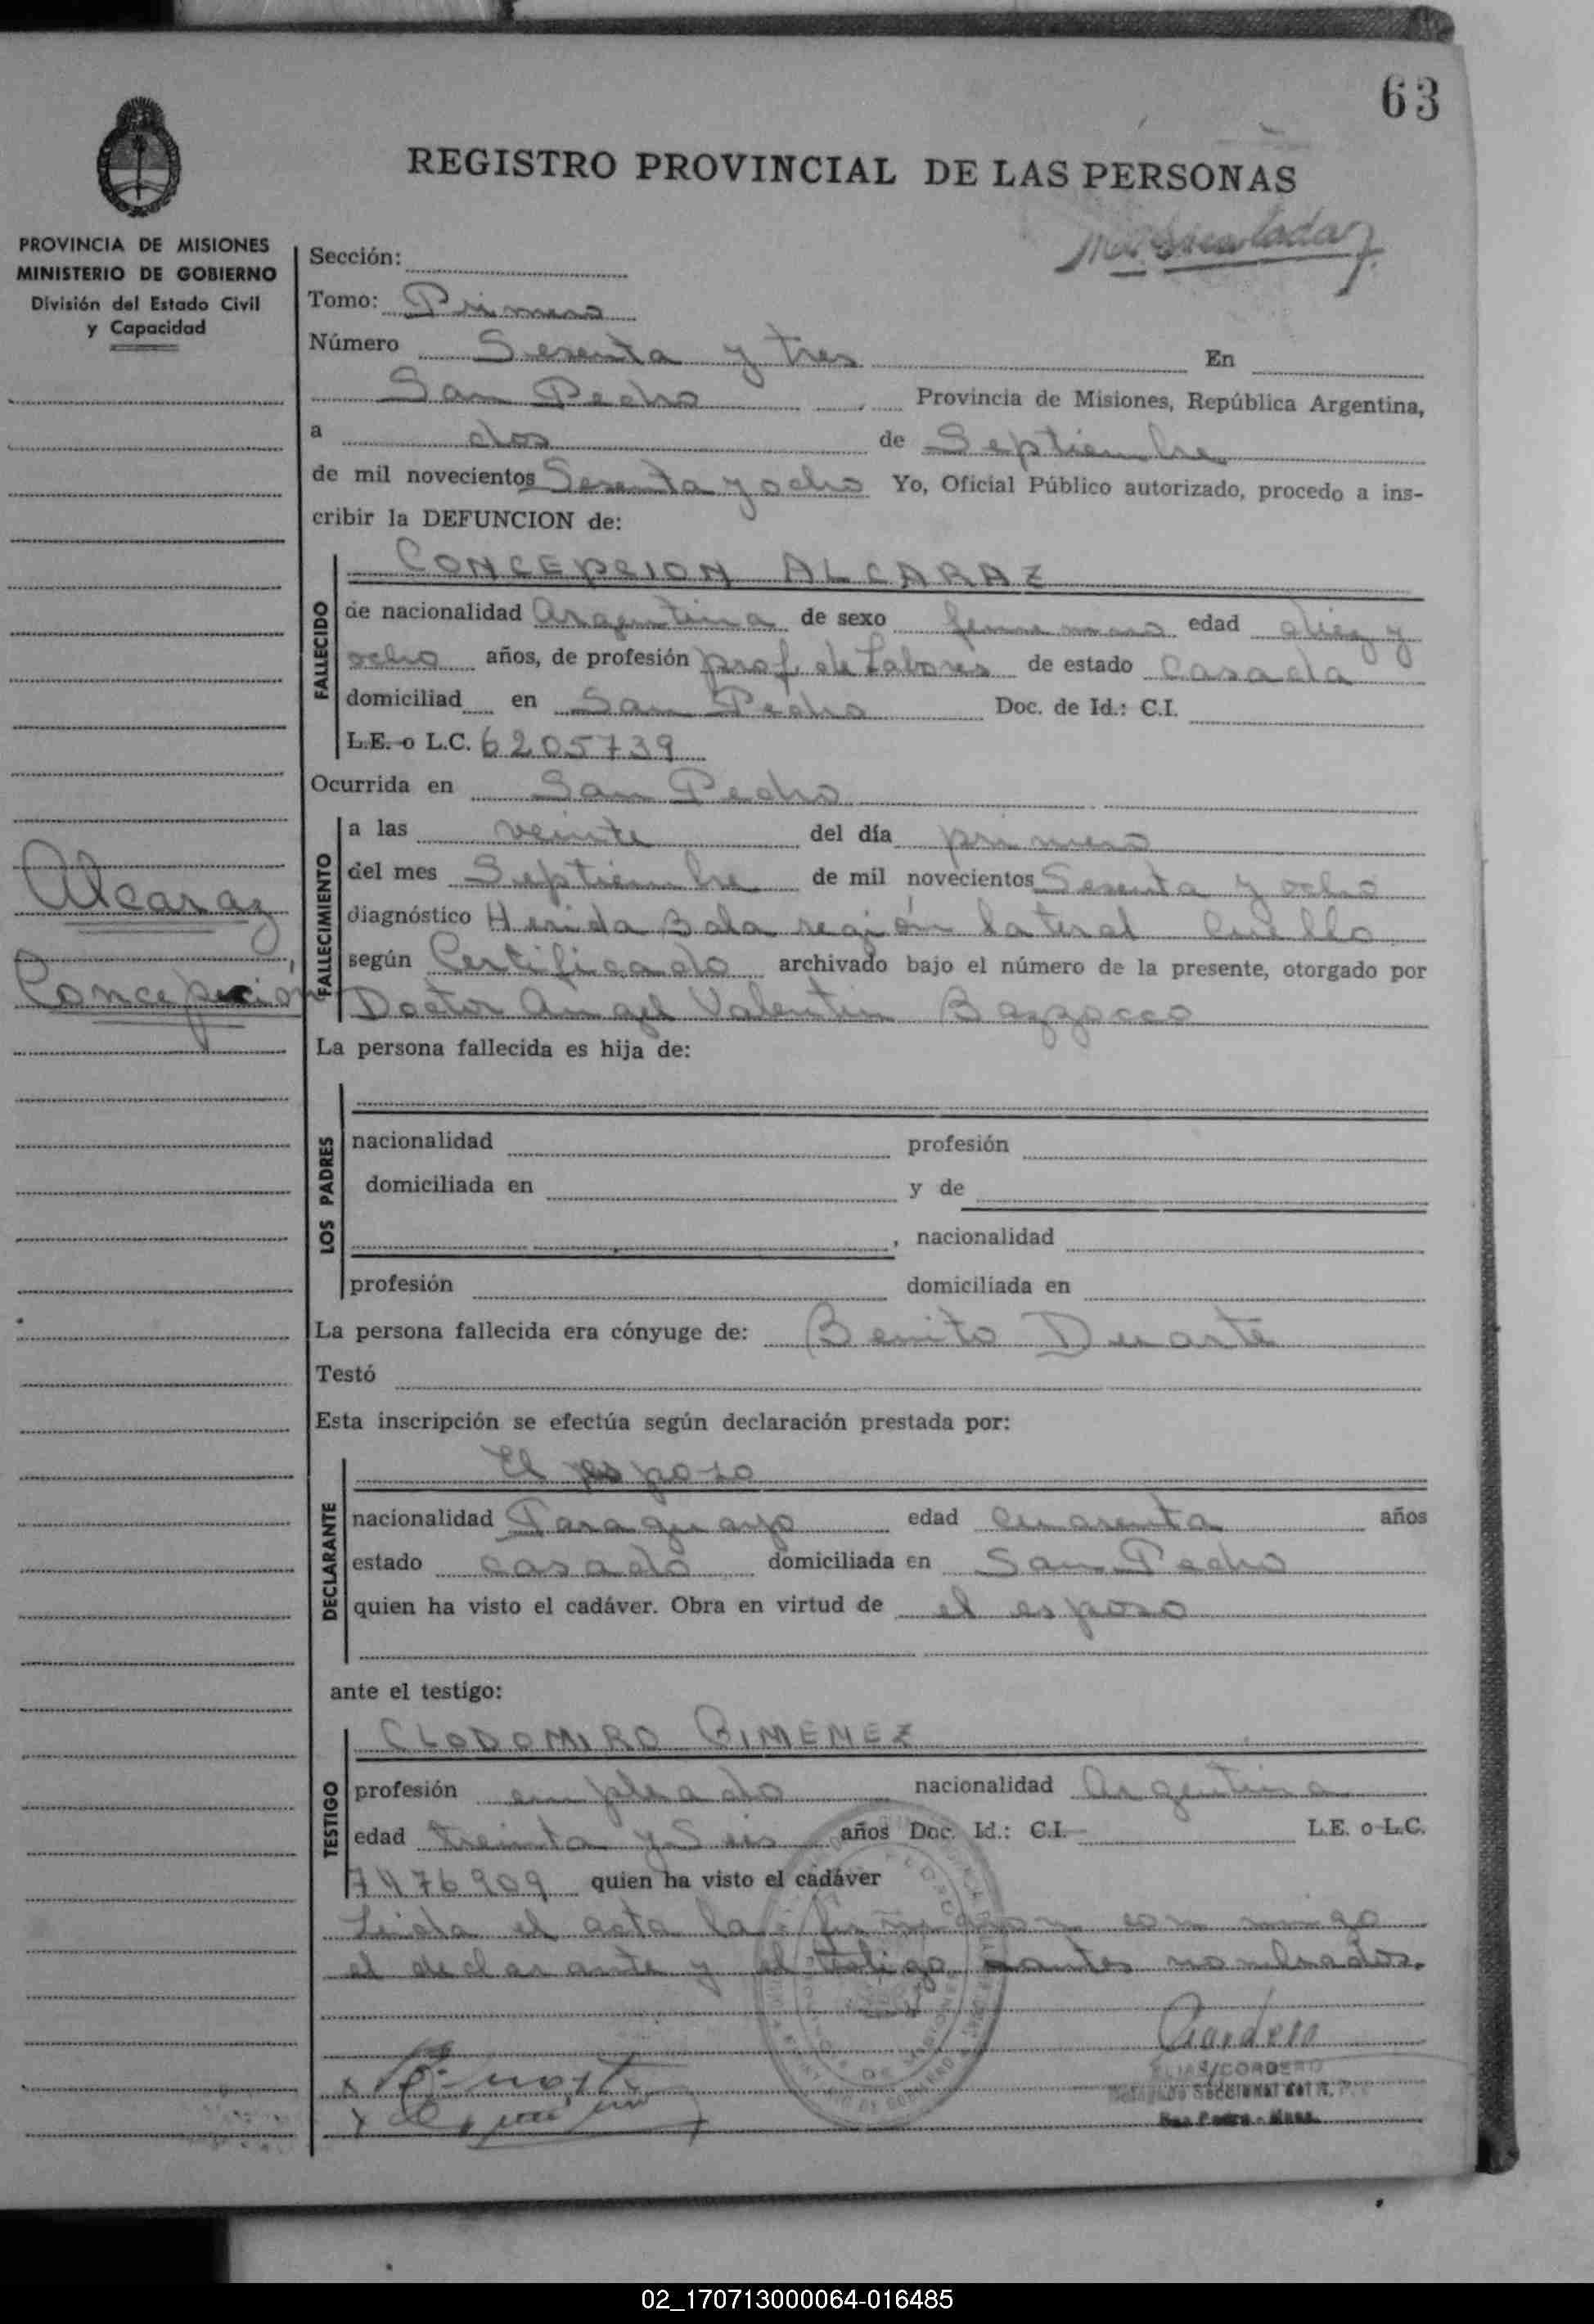 63
REGISTRO PROVINCIAL DE LAS PERSONAS
PROVINCIA DE MISIONES
MINISTERIO DE GOBIERNO
División del Estado Civil
y Capacidad
Sección:
Tomo: Primero
Número Sesenta y tres En
San Pedro Provincia de Misiones, República Argentina,
a dos de Septiembre
de mil novecientos Sesenta y ocho Yo, Oficial Público autorizado, procedo a ins-
cribir la DEFUNCION de:
FALLECIDO
CONCEPCION ALCARAZ
de nacionalidad Argentina de sexo edad diez y
ocho años, de profesión prof. de Labores de estado Casada
domiciliad en San Pedro Doc. de Id.: C.I.
L.E. o L.C. 6205739
Ocurrida en San Pedro
Alcaraz
Concepcion
FALLECIMIENTO
a las veinte del día primero
del mes Septiembre de mil novecientos Sesenta y ocho
diagnóstico Herida Bala región lateral Cuello
según Certificado archivado bajo el número de la presente, otorgado por
Doctor Angel Valentin Bazzocco
La persona fallecida es hija de:
LOS PADRES
nacionalidad profesión
domiciliada en y de
, nacionalidad
profesión domiciliada en
La persona fallecida era cónyuge de: Benito Duarte
Testó
Esta inscripción se efectúa según declaración prestada por:
DECLARANTE
El esposo
nacionalidad Paraguayo edad Cuarenta años
estado casado domiciliada en San Pedro
quien ha visto el cadáver. Obra en virtud de el esposo
ante el testigo:
TESTIGO
CLODOMIRO GIMENEZ
profesión empleado nacionalidad Argentina
edad treinta y Seis años Doc. Id.: C.I. L.E. o L.C.
7476909 quien ha visto el cadáver
Leida el acta la firmaron con migo
el declarante y el testigo antes nombrados.
ELIAS CORDERO
San Pedro - Mnes.
02_170713000064-016485